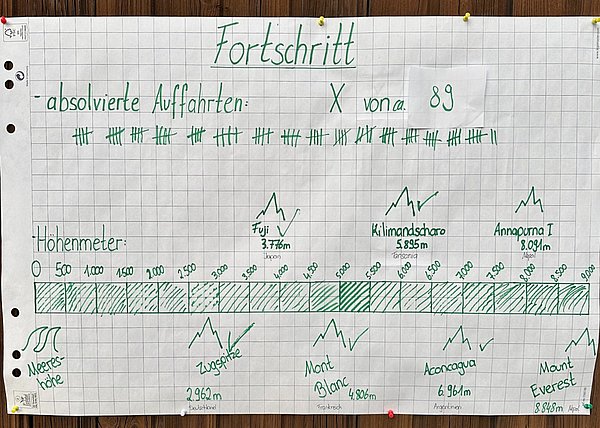 Fortschritt
- absolvierte Auffahrten: X von ca. 89
Fuji
3.776m
Japan
Kilimandscharo
5.895m
Tansania
Annapurna I
8.091m
Nepal
- Höhenmeter:
0 500 1.000 1.500 2.000 2.500 3.000 3.500 4.000 4.500 5.000 5.500 6.000 6.500 7.000 7.500 8.000 8.500 9.000
Meeres-
höhe
Zugspitze
2.962m
Deutschland
Mont
Blanc
4.806m
Frankreich
Aconcagua
6.961m
Argentinien
Mount
Everest
8.848m
Nepal